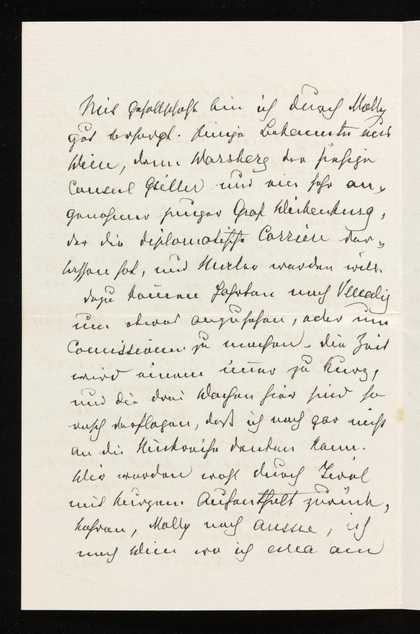 Mit Gesellschaft bin ich durch Molly
gut versorgt. Einige Bekannte aus
Wien, dann Warsberg der hiesige
Consul Giller und ein sehr an-
genehmer junger Graf Wickenburg,
der die diplomatische Carrière ver-
lassen hat, und Maler werden will.
dazu kommen Fahrten nach Venedig
um etwas anzusehen, oder um
Comissionen zu machen. die Zeit
wird einem immer zu kurz,
und die drei Wochen hier sind so
rasch verflogen, daß ich noch gar nicht
an die Rückreise denken kann.
Wir werden wohl durch Tirol
mit kurzem Aufenthalt zurück,
kehren, Molly nach Aussee, ich
nach Wien wo ich circa am